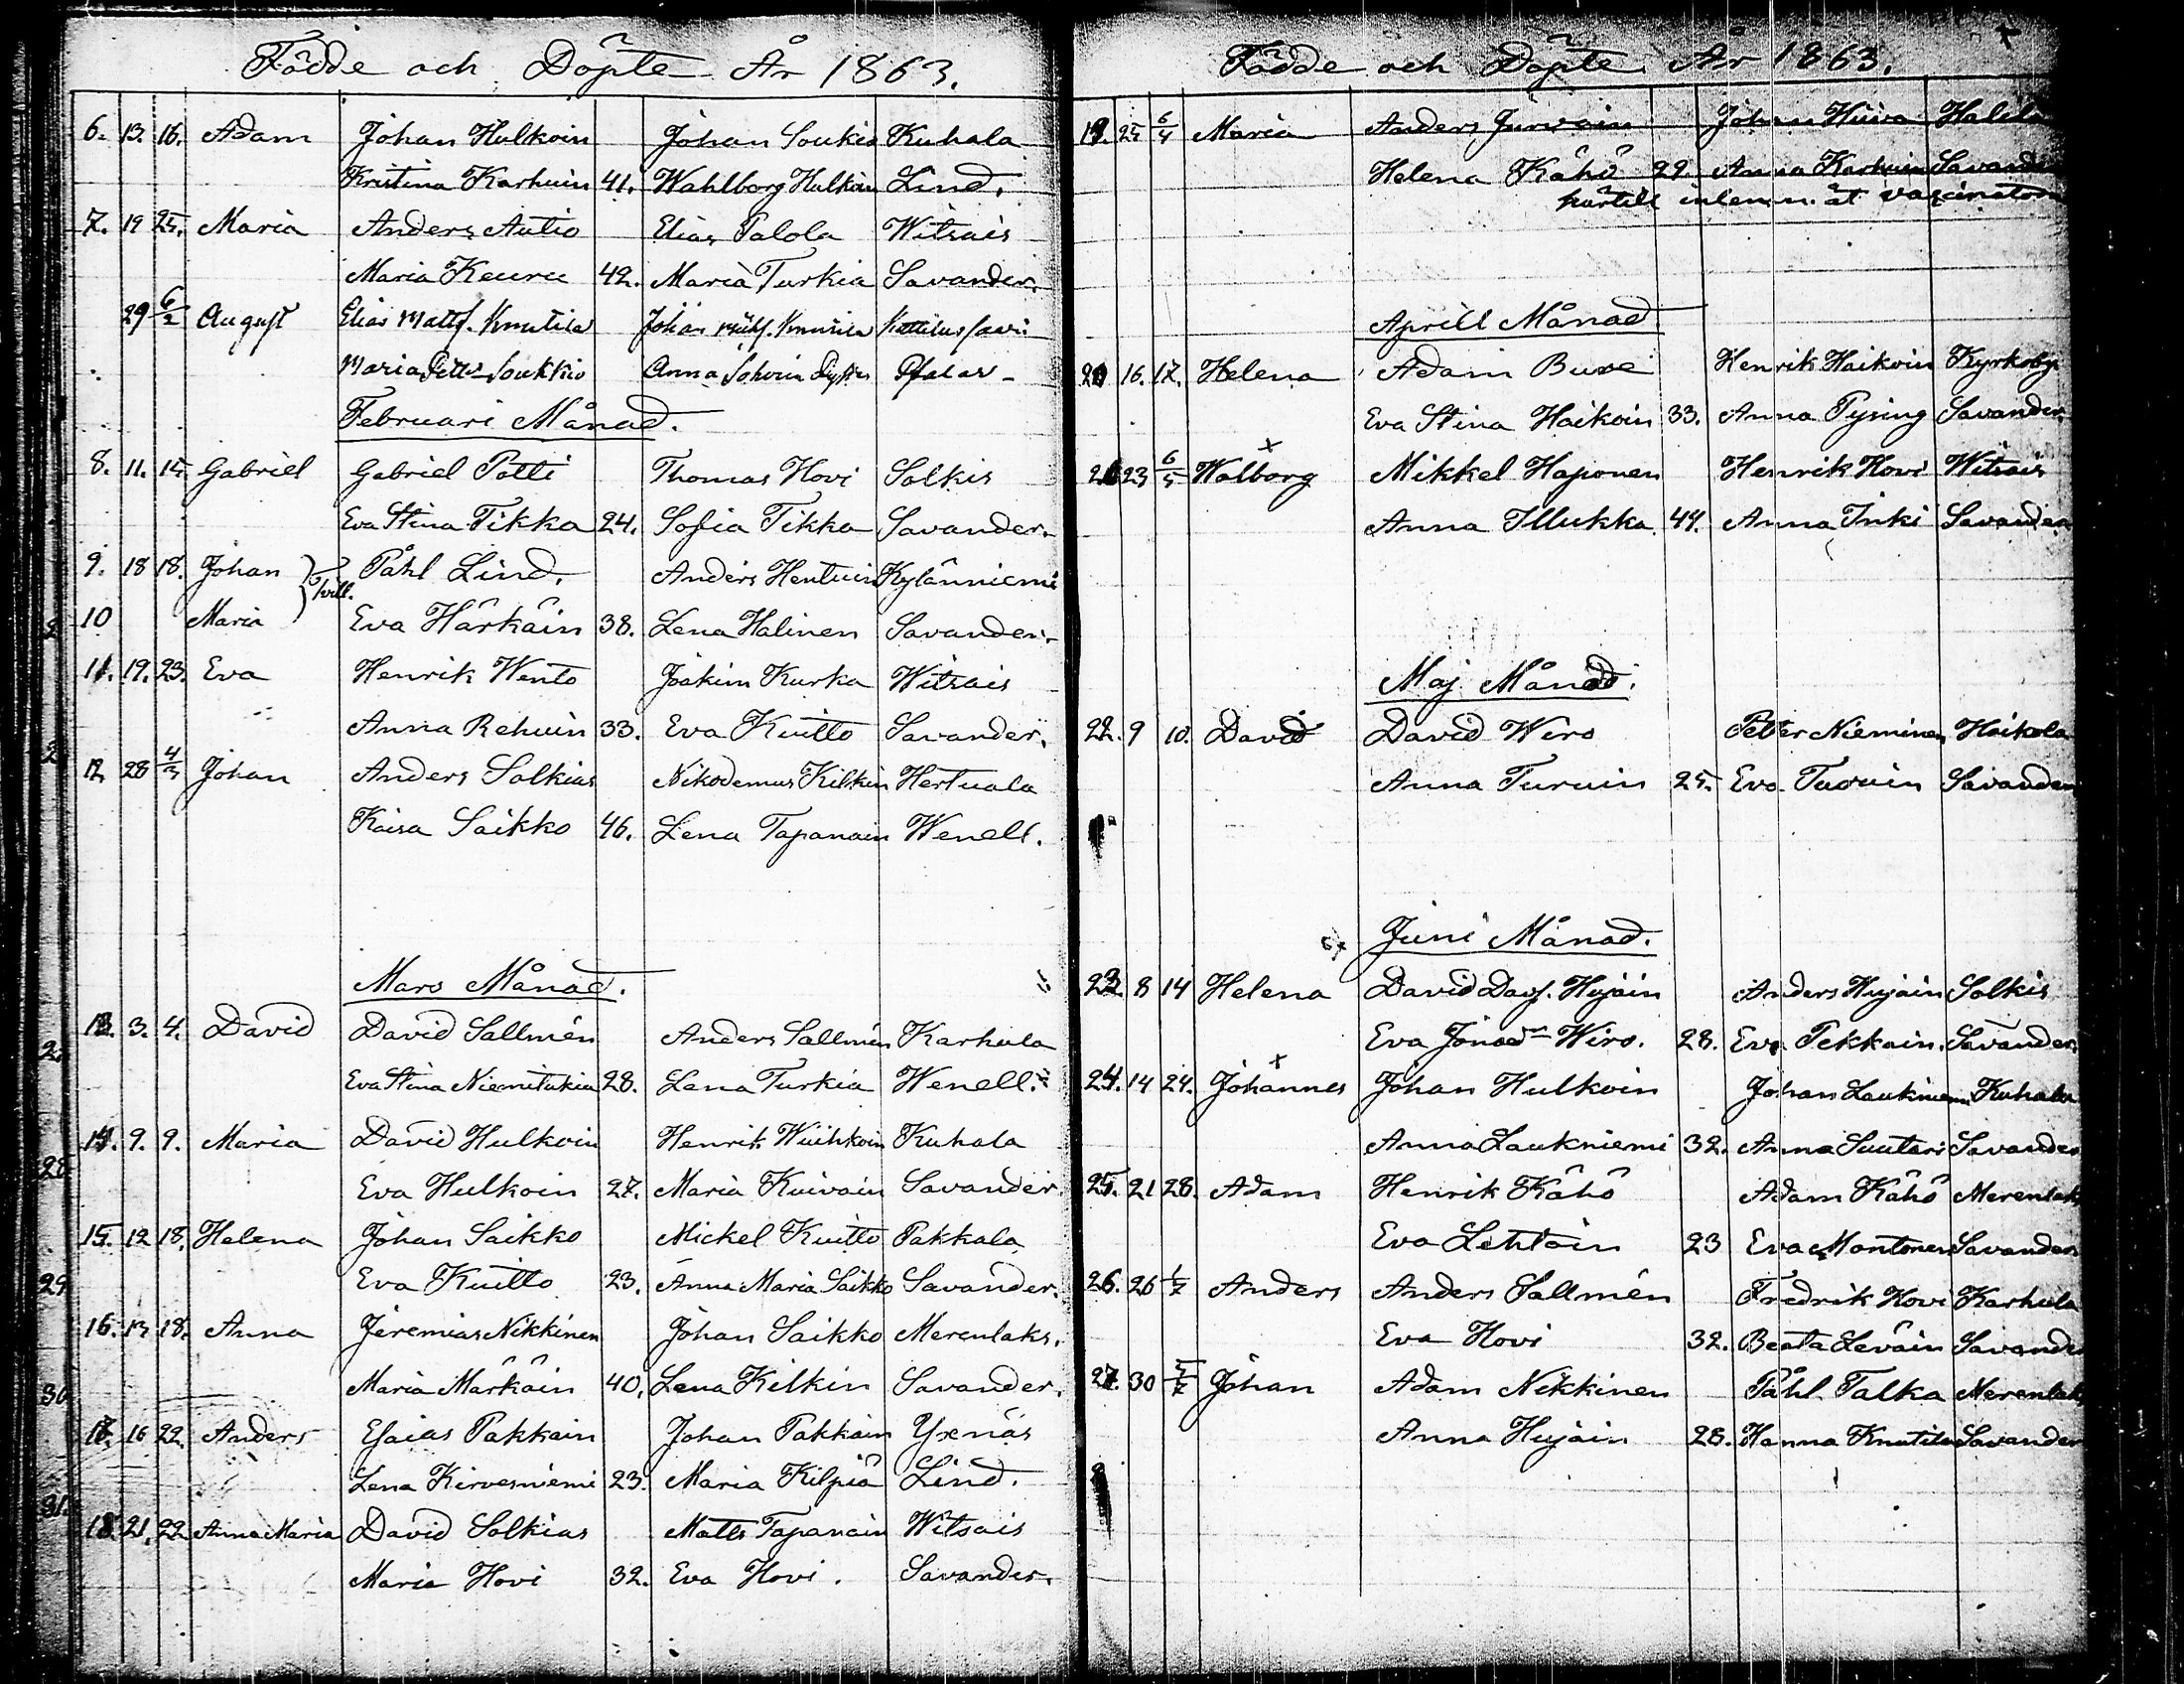 Födde och Döpte År 1863.
6. 13. 16. Adam Johan Hulkoin Johan Soukio Kuhala
Kristina Karhuin 41. Wahlborg Hulkoin Lind.
7. 19 25. Maria Anders Autio Elias Palola Witsais
Maria Keuru 42. Maria Turkia Savander.
29 6/2 August Elias Matts. Knutila Johan Knutila
Maria Soukkio Anna
Februari Månad.
8. 11. 15. Gabriel Gabriel Potti Thomas Hovi Solkis
Eva Stina Tikka 24. Sofia Tikka Savander.
9. 18 18. Johan Påhl Lind. Anders Hentuin Kylänniemi
10 Maria Eva Härkäin 38. Lena Halinen Savander.
11. 19. 23. Eva Henrik Wento Joakim Kurka Witsais
Anna Rehuin 33. Eva Kuitto Savander.
12. 28 4/3 Johan Anders Solkias Nikodemus Kilkin Hertuala
Kaisa Saikko 46. Lena Tapanain Wenell.
Mars Månad.
13. 3. 4. David David Sallmén Anders Sallmén Karhula
Eva Stina Niemitukia 28. Lena Turkia Wenell.
14. 9. 9. Maria David Hulkoin Henrik Wiihkoin Kuhala
Eva Hulkoin 27. Maria Kuivain Savander.
15. 12 18. Helena Johan Saikko Mickel Kuitto Pakkala
Eva Kuitto 23. Anna Maria Saikko Savander.
16. 13 18. Anna Jeremias Nikkinen Johan Saikko Merenlaks.
Maria Märkäin 40. Lena Kilkin Savander.
17. 16 22. Anders Esaias Pakkain Johan Pakkain Yxnäs
Lena Kirvesniemi 23. Maria Kilpiä Lind.
18. 21. 22 Anna Maria David Solkias Matts Tapanain Witsais
Maria Hovi 32. Eva Hovi. Savander.
Födde och Döpte År 1863.
19. 25 6/4 Maria Anders Jurvain Johan Huiva Halila
Helena Kähö 29. Anna Karhuin Savander
härtill inlemn. åt vaccinatorn
Aprill Månad.
20 16. 17. Helena Adam Buxe Henrik Haikoin Kyrkoby
Eva Stina Haikoin 33. Anna Pysing Savander.
21 23 6/5 Walborg Mikkel Haponen Henrik Hovi Witsais
Anna Illukka. 44. Anna Inki Savander
Maj Månad.
22. 9 10. David David Wiro Petter Nieminen Haikola
Anna Turuin 25. Eva Turuin Savander
Juni Månad.
23. 8 14 Helena David Davs. Hujain Anders Hujain Solkis
Eva Wiro. 28. Eva Pekkain. Savander.
24. 14 24. Johannes Johan Hulkoin Johan Laukniemi Kuhala
Anna Laukniemi 32. Anna Suutari Savander
25. 21 28. Adam Henrik Kähö Adam Kähö Merenlaks
Eva Lehtoin 23 Eva Montonen Savander
26. 26 1/7 Anders Anders Sallmén Fredrik Hovi Karhula
Eva Hovi 32. Beata Leväin Savander
27. 30 5/7 Johan Adam Nikkinen Påhl Talka Merenlaks
Anna Hujain 28. Hanna Knutila Savander